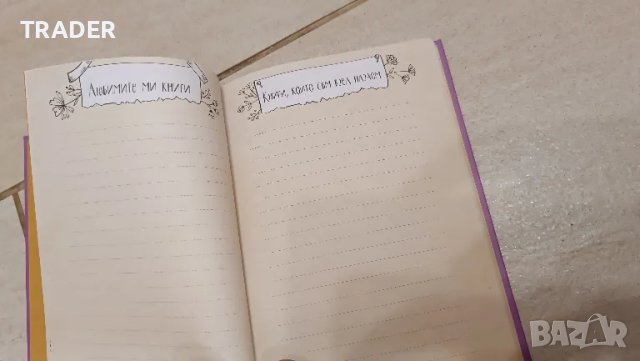 TRADER
ЛЮБИМИТЕ МИ КНИГИ
КНИГИ, КОИТО СЪМ ВЗЕЛ НАЗАЕМ
BAZAR